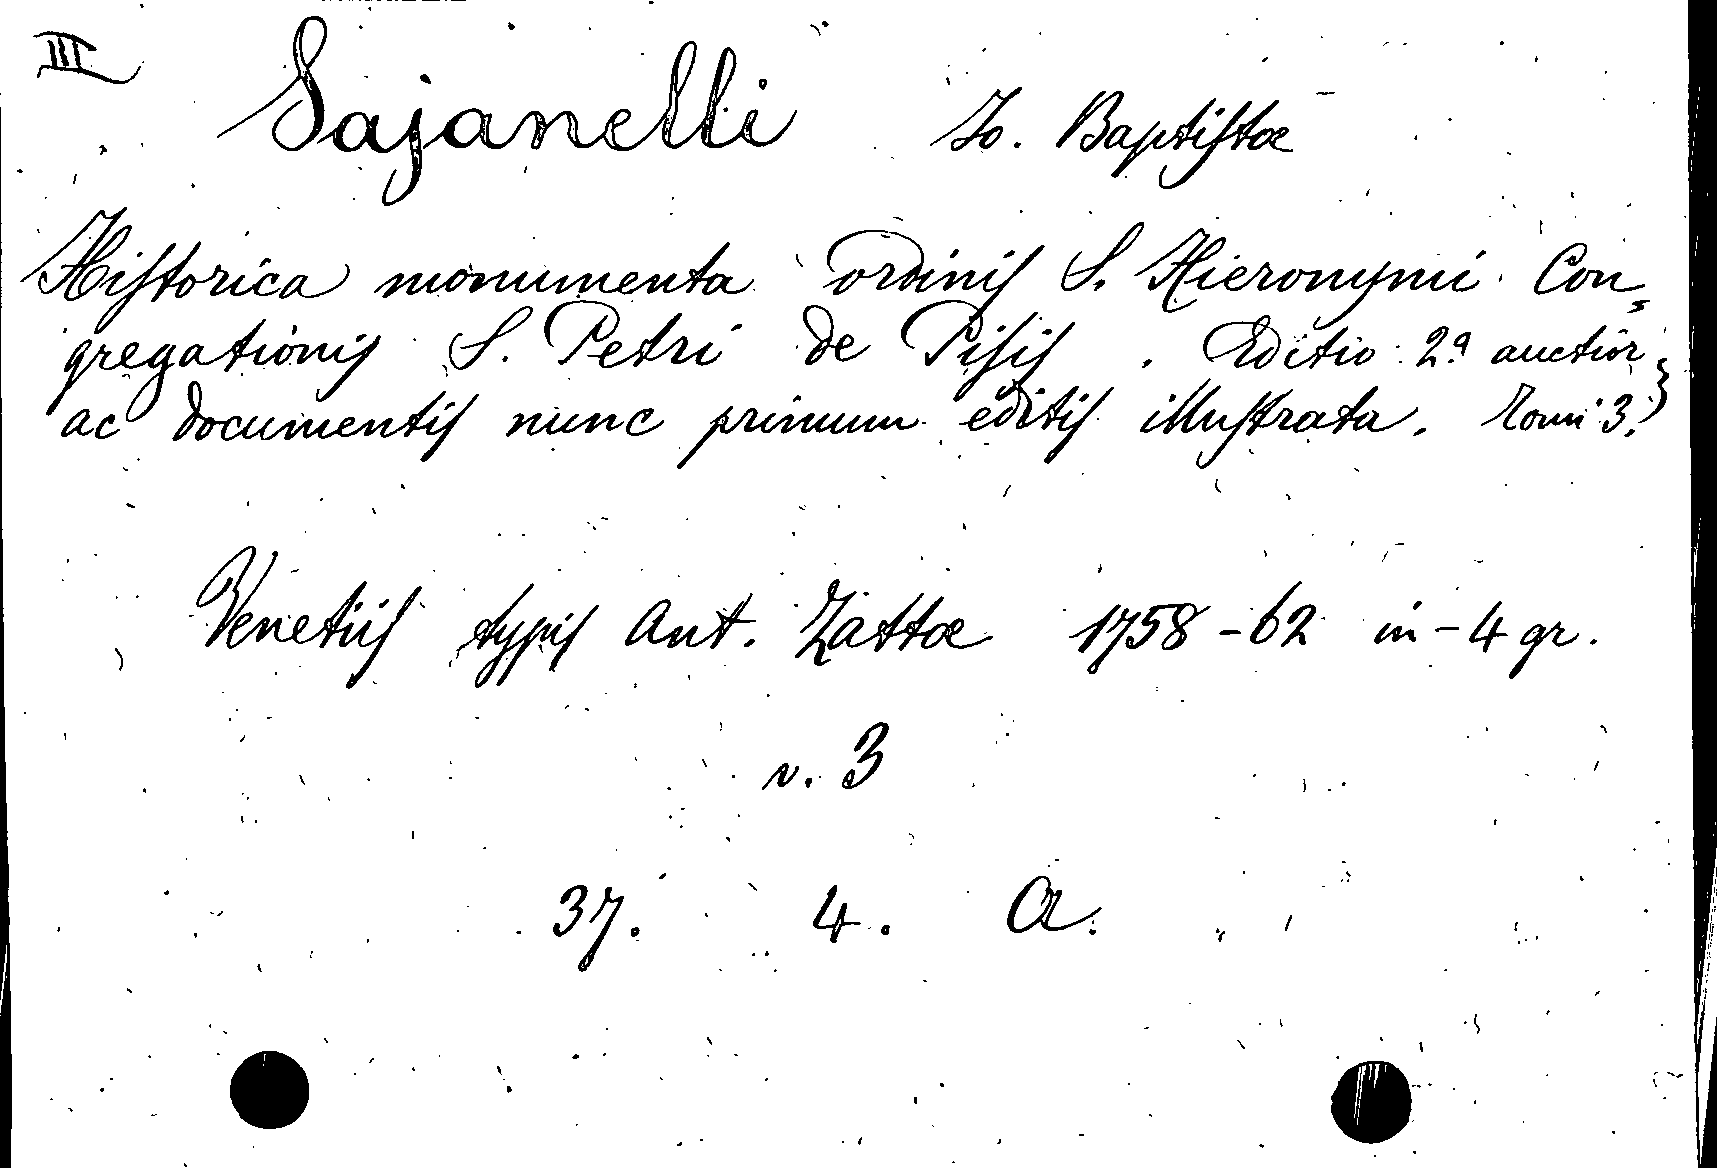 III
Sajanelli Jo. Baptistæ
Historica monumenta ordinis S. Hieronymi Con=
gregationis S. Petri de Pisis. Editio 2.a auctior
ac documentis nunc primum editis illustrata. Tomi 3.
Venetiis typis Ant. Zattæ 1758-62 in-4 gr.
v. 3
37. 4. A.